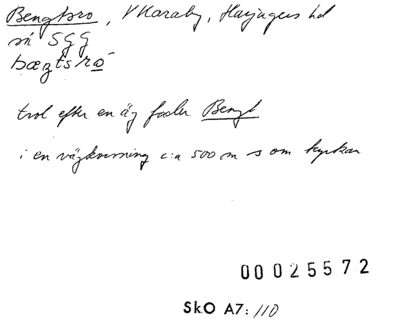 Bengtsro, V Karaby, Harjagers hd
SGG
bæŋtsró
trol efter en äg fader Bengt
i en vägkorsning c:a 500 m s om kyrkan
00025572
SkO A7: 110